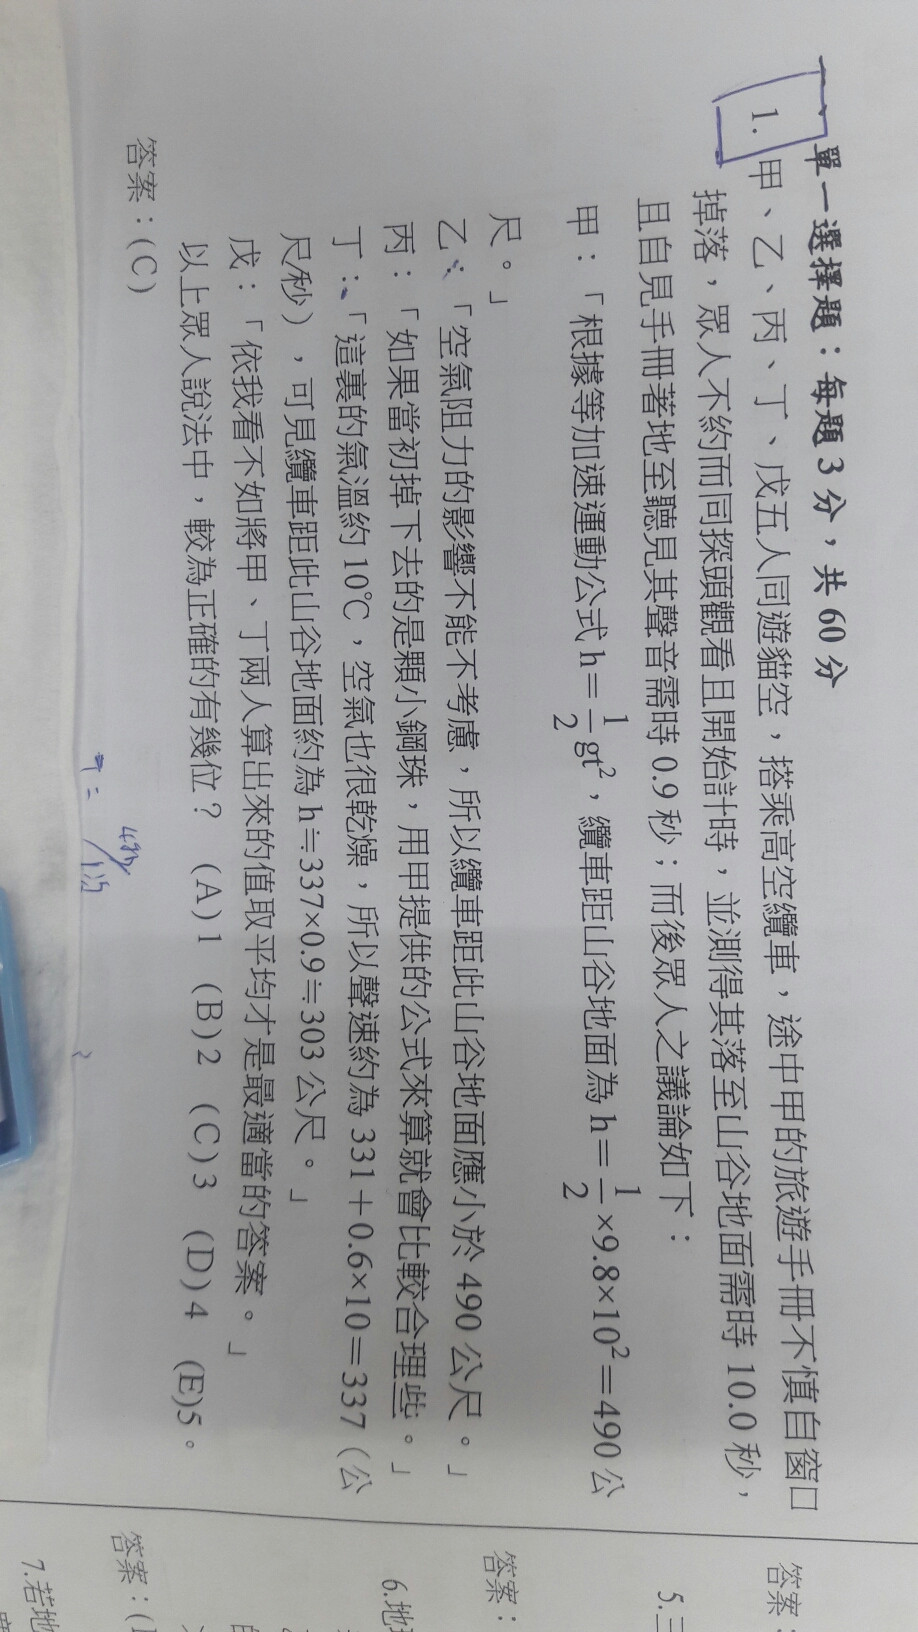 一、單一選擇題：每題 3 分，共 60 分
1. 甲、乙、丙、丁、戊五人同遊貓空，搭乘高空纜車，途中甲的旅遊手冊不慎自窗口
掉落，眾人不約而同探頭觀看且開始計時，並測得其落至山谷地面需時 10.0 秒，
且自見手冊著地至聽見其聲音需時 0.9 秒；而後眾人之議論如下：
甲：「根據等加速運動公式 h=1/2 gt²，纜車距山谷地面為 h=1/2×9.8×10²=490 公
尺。」
乙：「空氣阻力的影響不能不考慮，所以纜車距此山谷地面應小於 490 公尺。」
丙：「如果當初掉下去的是顆小鋼珠，用甲提供的公式來算就會比較合理些。」
丁：「這裏的氣溫約 10℃，空氣也很乾燥，所以聲速約為 331＋0.6×10＝337（公
尺/秒），可見纜車距此山谷地面約為 h≒337×0.9≒303 公尺。」
戊：「依我看不如將甲、丁兩人算出來的值取平均才是最適當的答案。」
以上眾人說法中，較為正確的有幾位？ (A) 1 (B) 2 (C) 3 (D) 4 (E)5。
答案：(C)
答案：
5.三
答案：
6.地
答案：(
7.若地